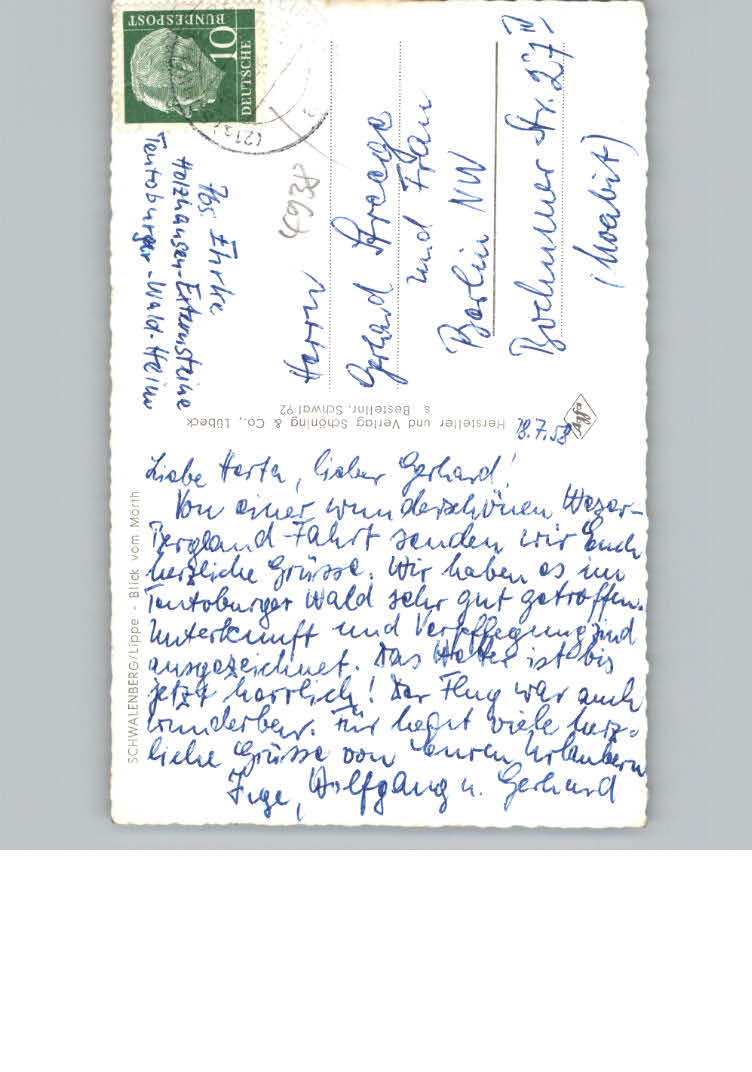 DEUTSCHE
BUNDESPOST
10
Abs. Ehrke
Holzhausen-Externsteine
Teutoburger-Wald-Heim
Herrn
Gerhard
und Frau
Berlin NW
Bochumer Str. 27 IV
(Moabit)
Hersteller und Verlag Schöning & Co., Lübeck
s Bestellnr. Schwal 92
18.7.58
SCHWALENBERG/Lippe - Blick vom Mörth
Liebe Herta, lieber Gerhard!
Von einer wunderschönen Weser-
Bergland-Fahrt senden wir Euch
herzliche Grüsse. Wir haben es im
Teutoburger Wald sehr gut getroffen.
Unterkunft und Verpflegung sind
ausgezeichnet. Das Wetter ist bis
jetzt herrlich! Der Flug war auch
wunderbar. Für heut viele herz-
liche Grüsse von Euren Urlaubern
Inge, Wolfgang u. Gerhard